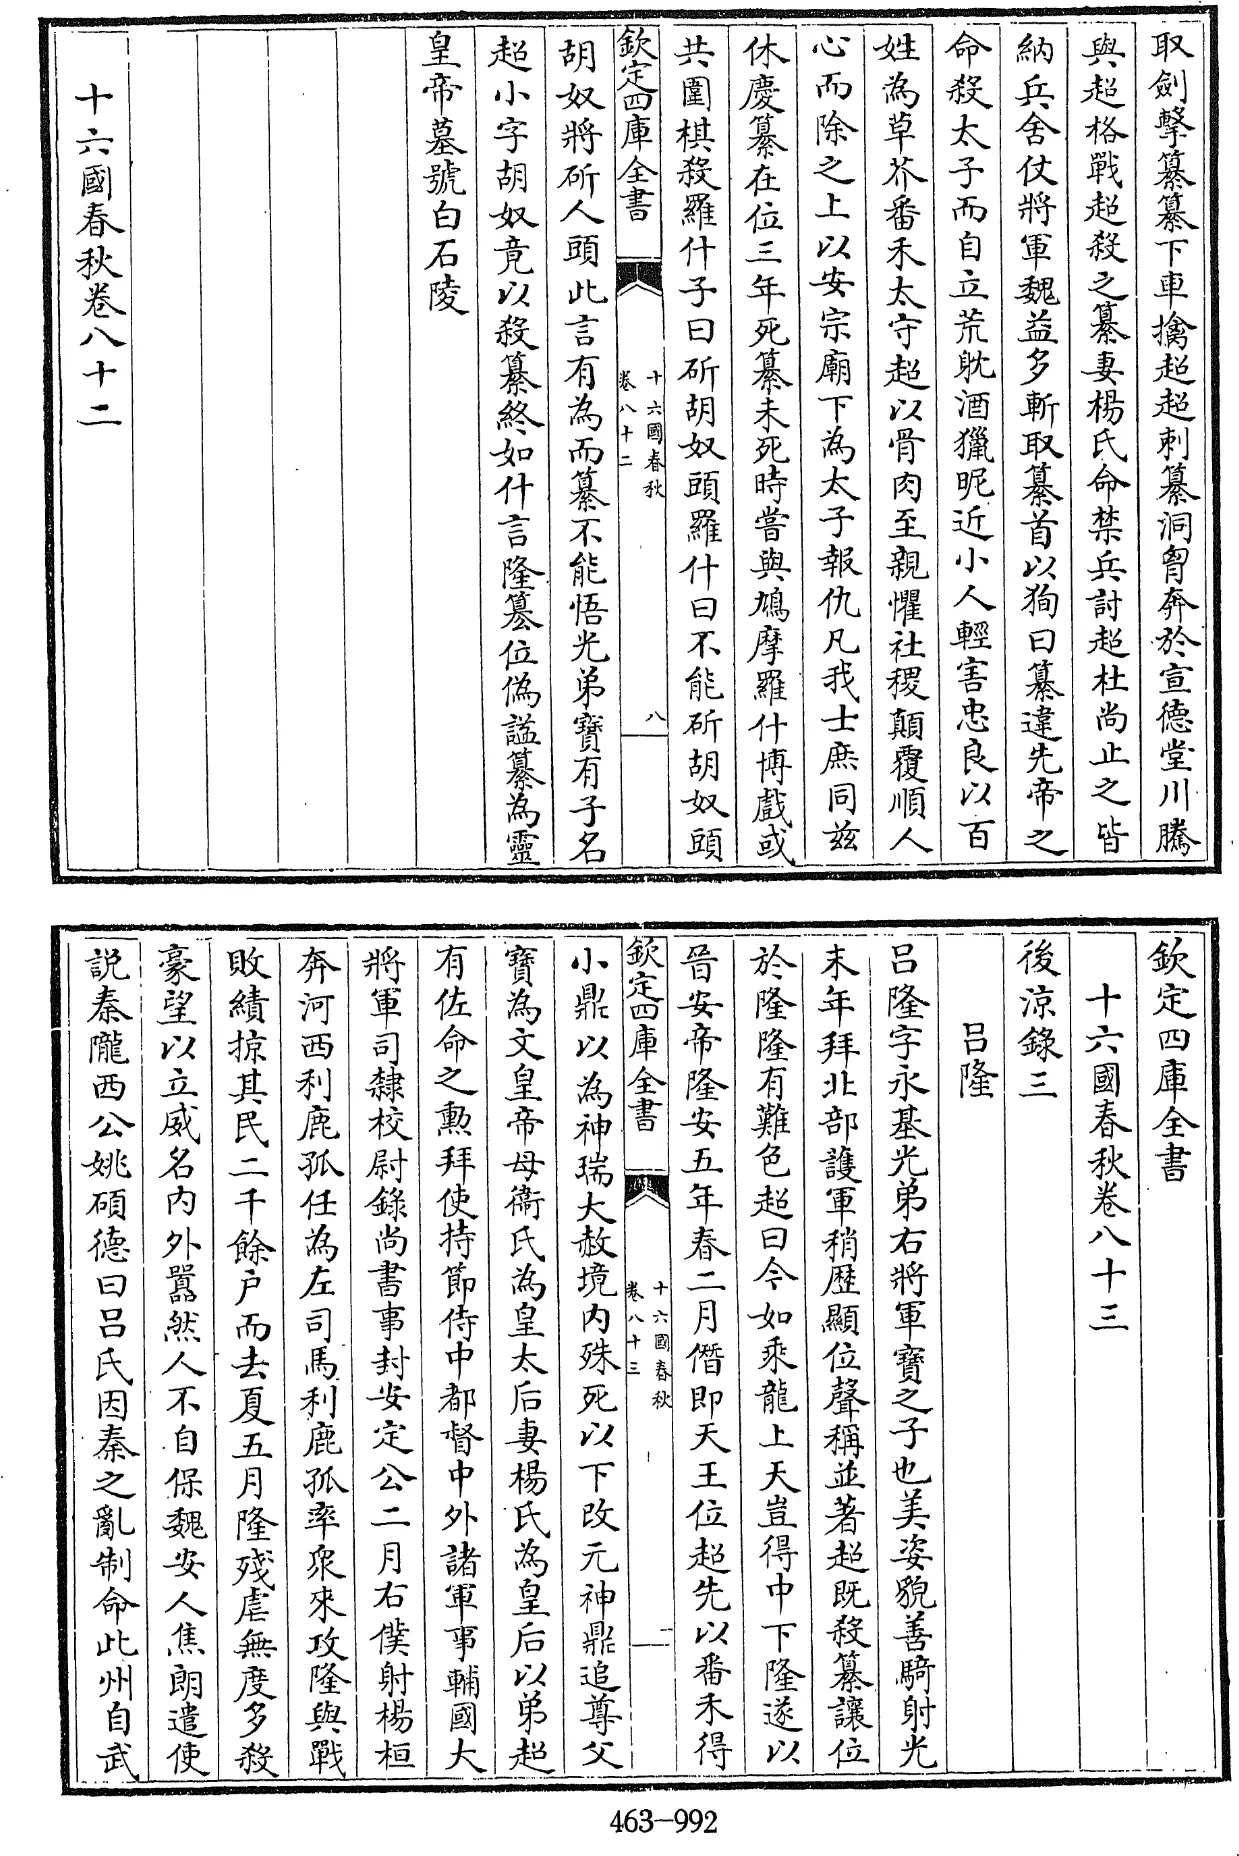 取劍擊纂纂下車擒超超刺纂洞胷奔於宣德堂川騰
與超格戰超殺之纂妻楊氏命禁兵討超杜尚止之皆
納兵舍仗將軍魏益多斬取纂首以狥曰纂違先帝之
命殺太子而自立荒耽酒獵昵近小人輕害忠良以百
姓為草芥番禾太守超以骨肉至親懼社稷顛覆順人
心而除之上以安宗廟下為太子報仇凡我士庶同兹
休慶纂在位三年死纂未死時嘗與鳩摩羅什博戲或
共圍棋殺羅什子曰斫胡奴頭羅什曰不能斫胡奴頭
欽定四庫全書
十六國春秋
卷八十二
八
胡奴將斫人頭此言有為而纂不能悟光弟寶有子名
超小字胡奴竟以殺纂終如什言隆篡位偽諡纂為靈
皇帝墓號白石陵
十六國春秋卷八十二
欽定四庫全書
十六國春秋卷八十三
後涼錄三
呂隆
呂隆字永基光弟右將軍寶之子也美姿貌善騎射光
末年拜北部護軍稍歴顯位聲稱並著超既殺纂讓位
於隆隆有難色超曰今如乘龍上天豈得中下隆遂以
晉安帝隆安五年春二月僭即天王位超先以番禾得
欽定四庫全書
十六國春秋
卷八十三
一
小鼎以為神瑞大赦境内殊死以下改元神鼎追尊父
寶為文皇帝母衞氏為皇太后妻楊氏為皇后以弟超
有佐命之勲拜使持節侍中都督中外諸軍事輔國大
將軍司隸校尉錄尚書事封安定公二月右僕射楊桓
奔河西利鹿孤任為左司馬利鹿孤率衆來攻隆與戰
敗績掠其民二千餘户而去夏五月隆殘虐無度多殺
豪望以立威名内外囂然人不自保魏安人焦朗遣使
説秦隴西公姚碩德曰呂氏因秦之亂制命此州自武
463-992